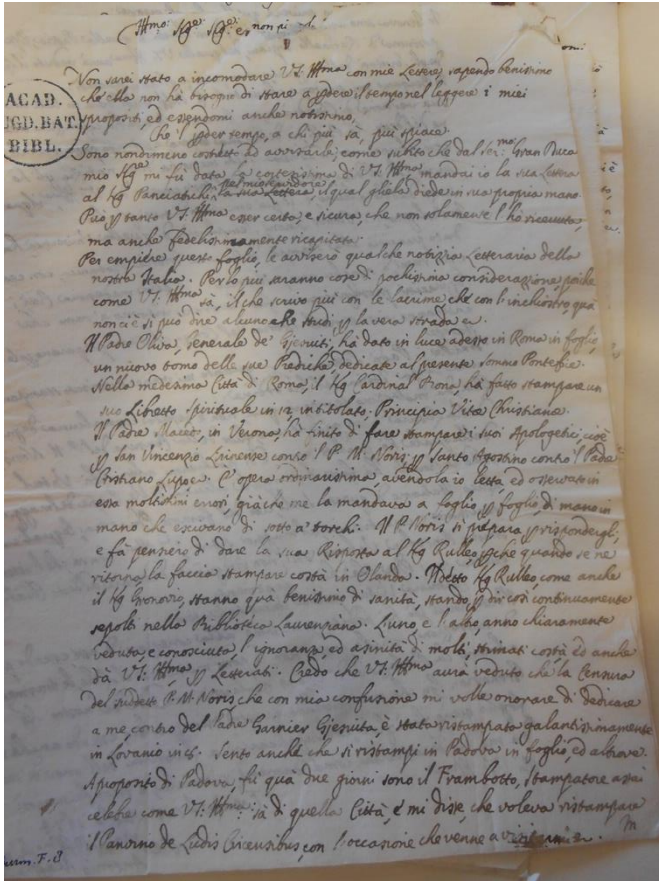 Illmo: Sige: Sige: e
ACAD.
UGD.BAT.
BIBL.
Non sarei stato a incomodare V.S. Illma con mie Lettere, sapendo benissimo
che ella non hà bisogno di stare a pdere il tempo nel leggere i miei
spropositi, ed essendomi anche notissimo,
ho 'l pder tempo, a chi più sà, più spiace.
Sono nondimeno costretto ad avvisarla; come subito che dal Ser:mo Gran Duca
mio Sige mi fù data la cortesissima di V.S. Illma, mandai io la sua Lettera
al Sig Panciatichi, la sua Lettera, il qual gliela diede in sua propria mano
Può p tanto V.S. Illma esser certa, e sicura, che non solamente l'ho ricevuta,
ma anche fedelissimamente ricapitata.
Per empire questo foglio, le avviserò qualche notizia Letteraria della
nostra Italia. Per lo più saranno cose di pochissima considerazione, poiche
come V.S. Illma sà, il che scrivo più con le lacrime, che con l'inchiostro, quà
non ci è si può dire alcuno che studi p la vera strada
Il Padre Oliva, Generale de' Gjesuiti, hà dato in luce adesso in Roma in foglio,
un nuovo tomo delle sue Prediche, dedicate al presente Sommo Pontefice.
Nella medesima Città di Roma, il Sig Cardinal Bona, hà fatto stampare un
suo Libretto Spirituale in 12, intitolato. Principia Vitæ Christianæ.
Il Padre Macedo, in Verona, hà finito di fare stampare i suoi Apologetici, cioè
p san Vincenzio Lirinense contro 'l P. M. Noris, p Santo Agostino contro 'l Padre
Cristiano Lupo. È opera ordinarissima, avendola io letta, ed osservato in
essa moltissimi errori, già che me la mandava a foglio p foglio, di mano in
mano che escivano di sotto a' torchi. Il P. Noris si prepara p rispondergli,
e fà pensiero di dare la sua Risposta al Sig Rulleo, pche quando se ne
ritorna, la faccia stampare costà in Olanda. Il detto Sig Rulleo, come anche
il Sig Gronovio, stanno quà benissimo di sanità, stando, p dir così continuamente
sepolti nella Biblioteca Laurenziana. L'uno, e l'altro, anno chiaramente
veduta, e conosciuta, l'ignoranza, ed asinità di molti, stimati costà, ed anche
dà V.S. Illma, p Letterati. Credo che V.S. Illma aurà veduto che la Censura
del suddett P. M. Noris, che con mia confusione mi volle onorare di dedicare
a me, contro del Padre Garnier Gjesuita, è stata ristampato galantissimamente
in Lovanio in 8. Sento anche che si ristampi in Padova in foglio, ed altrove.
A proposito di Padova, fù quà due giorni sono il Frambotto, Stampatore assai
celebre come V.S. Illma: sà di quella Città, e mi disse, che voleva ristampare
il Panvino de Ludis Circensibus, con l'occasione che venne a